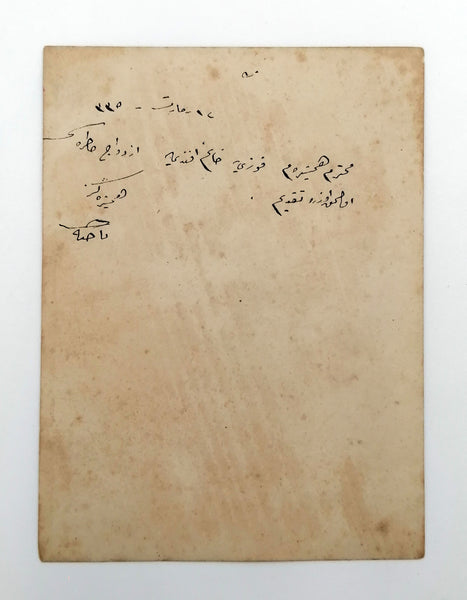 مارت ٣٣٥
محترم همشیره‌م فوزیه خانم افندی‌یه ازدواج خاطره‌سی
اولمق اوزره تقدیم
همشیره‌كز
ناجیه